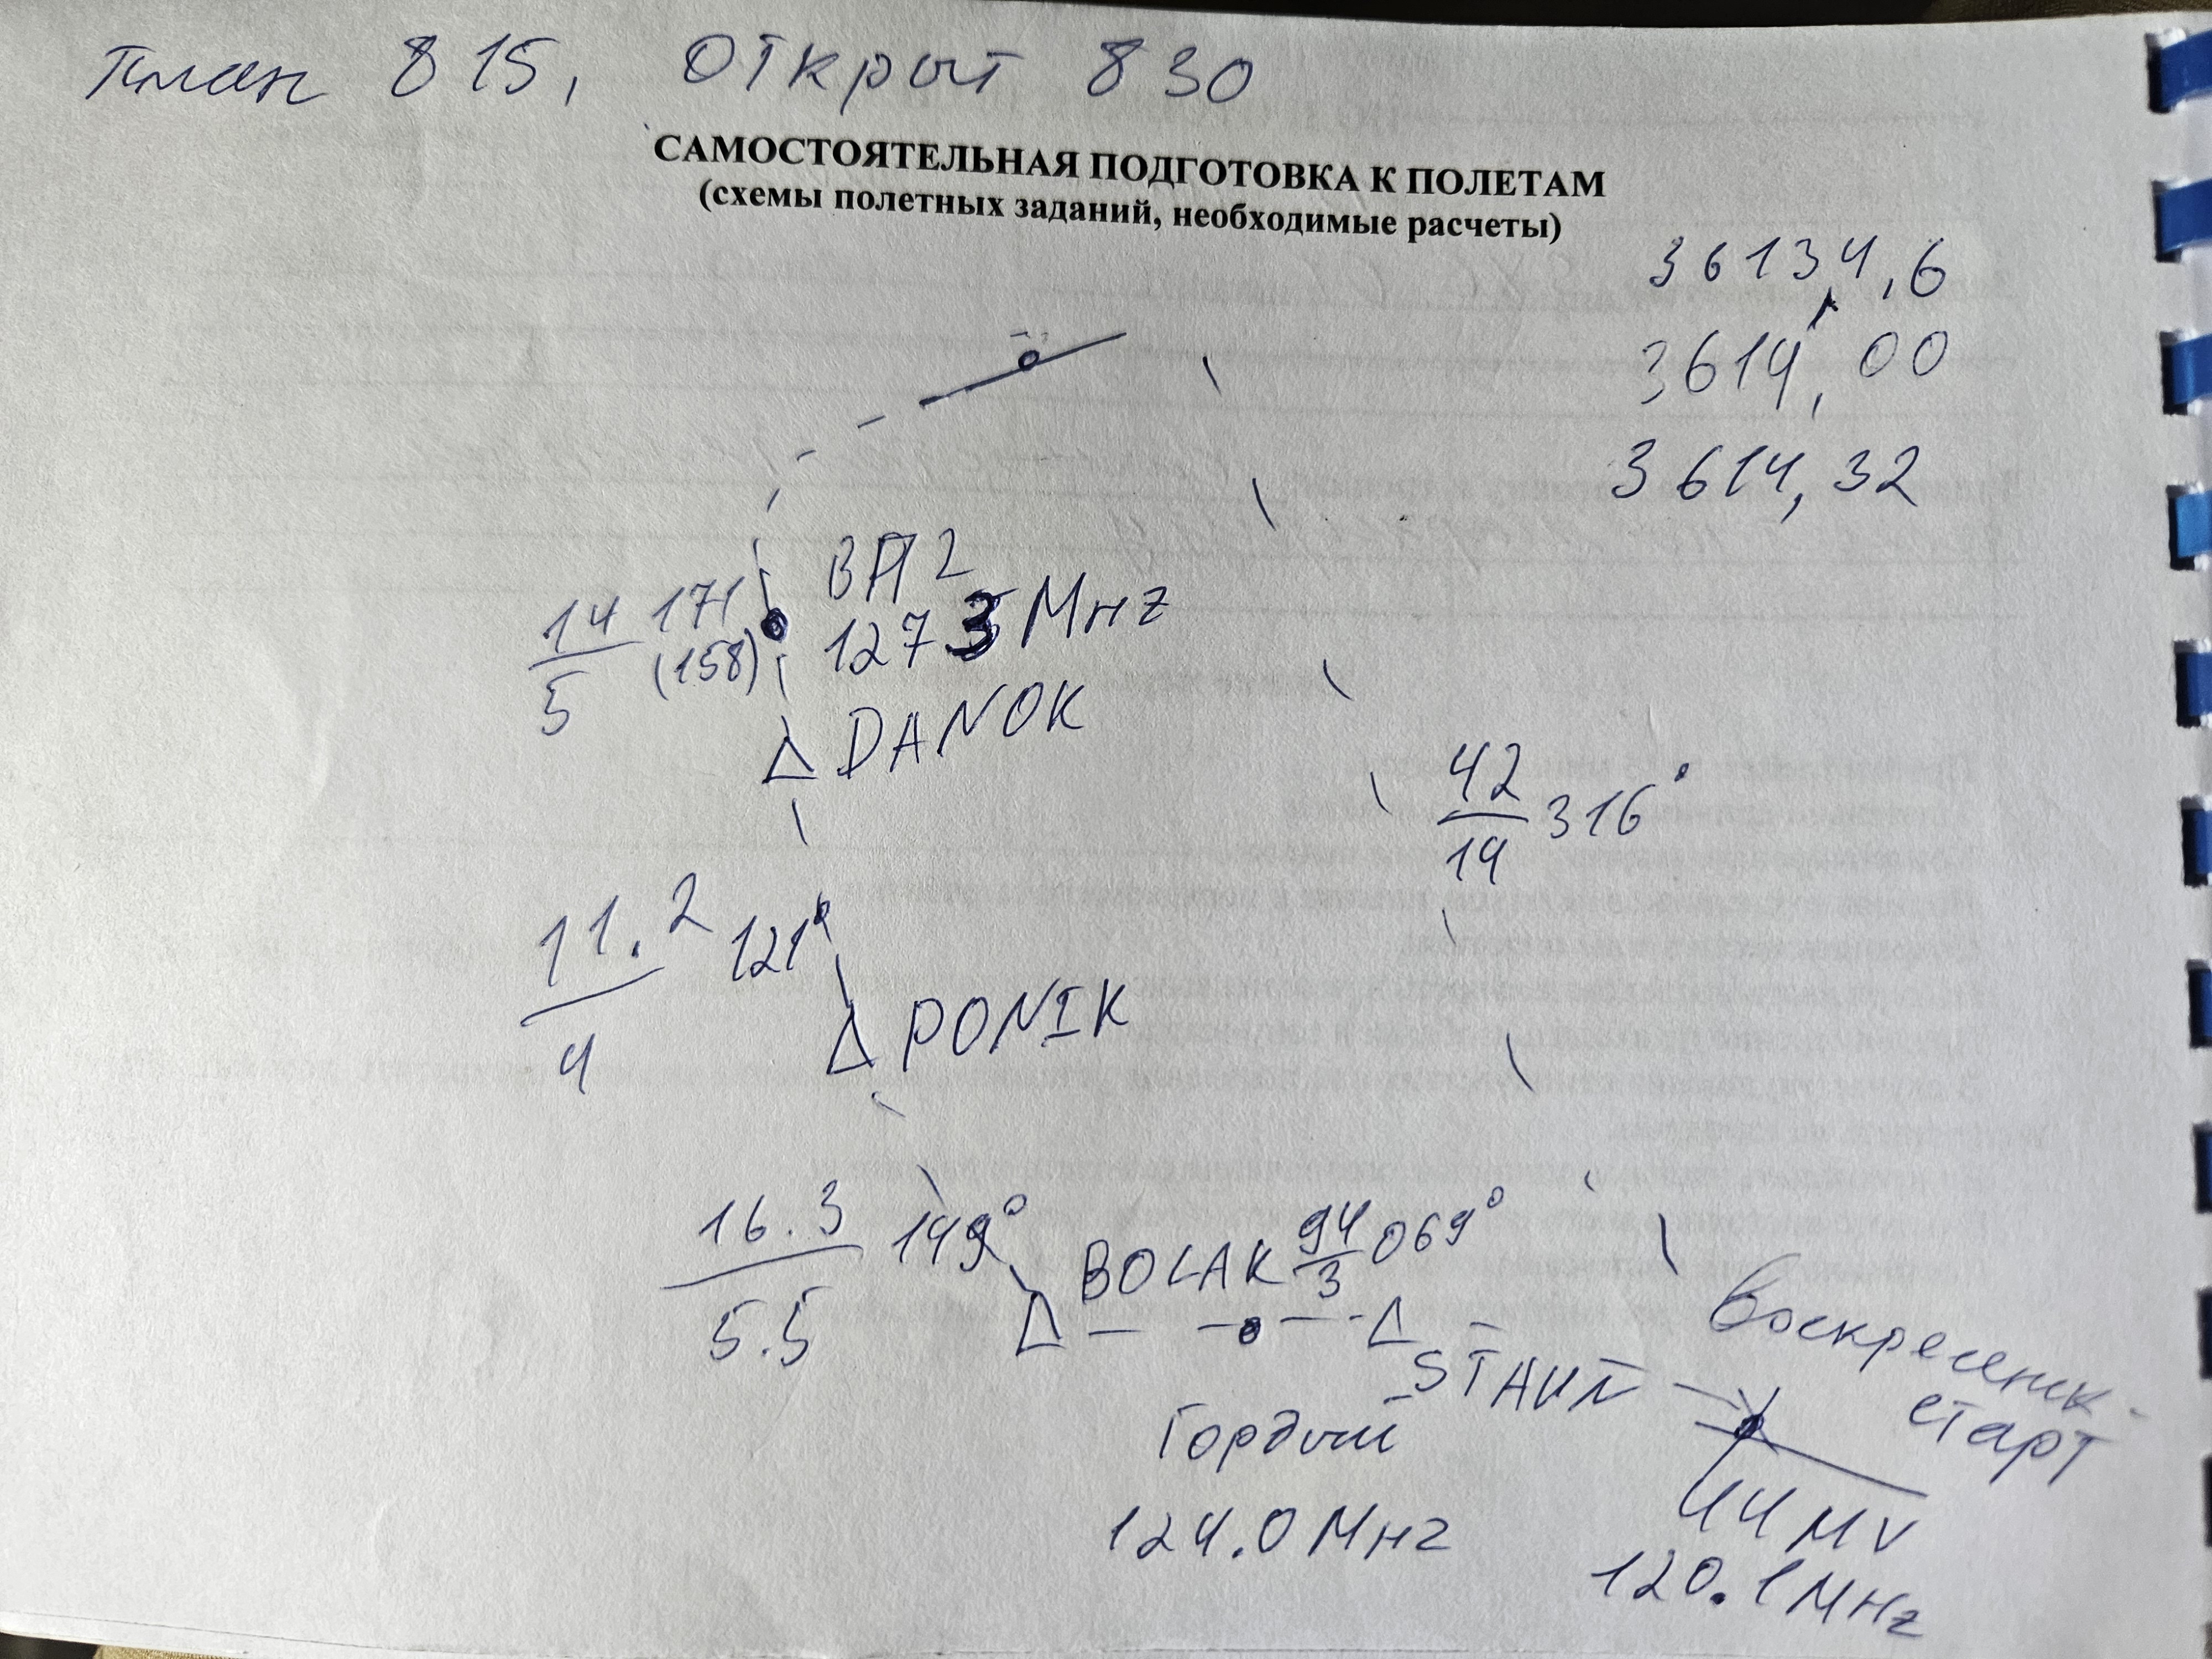 план 815, открыт 830
САМОСТОЯТЕЛЬНАЯ ПОДГОТОВКА К ПОЛЕТАМ
(схемы полетных заданий, необходимые расчеты)
36134,6
3614,00
3614,32
14/5 171 (158)
ВП2
127 3 MHz
DANOK
42/14 316°
11.2/4 121°
PONIK
16.3/5.5 149°
BOLAK 94/3 069°
Воскресенк-
старт
Гордый
124.0 MHz
44 MV
120.1 MHz